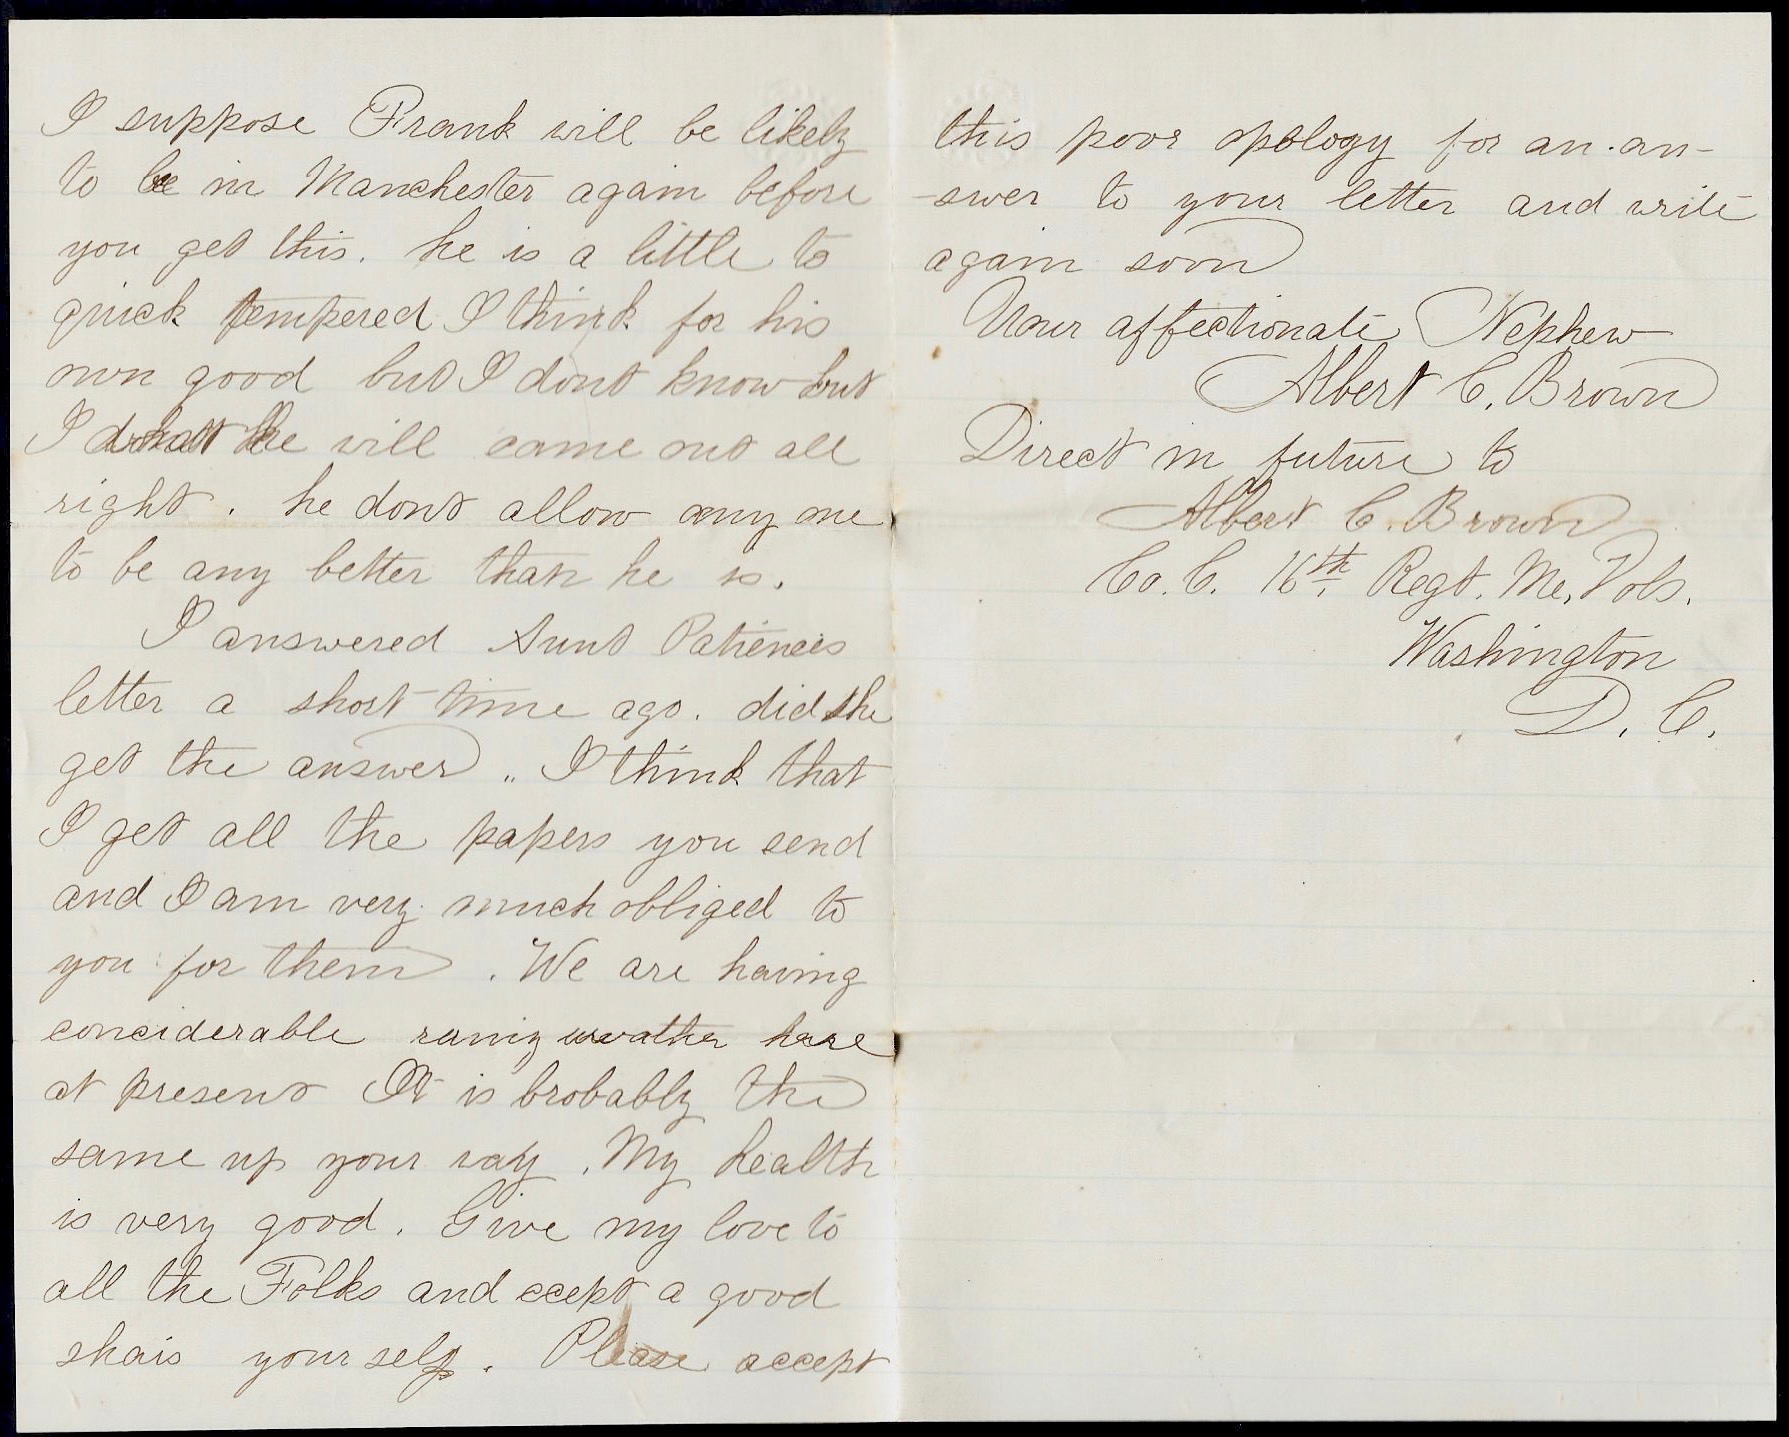 I suppose Frank will be likely
to be in Manchester again before
you get this. he is a little to
quick tempered I think for his
own good but I dont know but
I he will come out all
right. he dont allow any one
to be any better than he is.
I answered Aunt Patiences
letter a short time ago. did she
get the answer.. I think that
I get all the papers you send
and I am very much obliged to
you for them. We are having
conciderable rainy weather here
at present It is brobably the
same up your way. My health
is very good. Give my love to
all the Folks and ecept a good
shais your self. Please accept
this poor opology for an. an-
-swer to your letter and write
again soon
Your affectionate Nephew
Albert C. Brown
Direct in future to
Albert C. Brown
Co. C. 16th Regt. Me. Vols.
Washington
D. C.